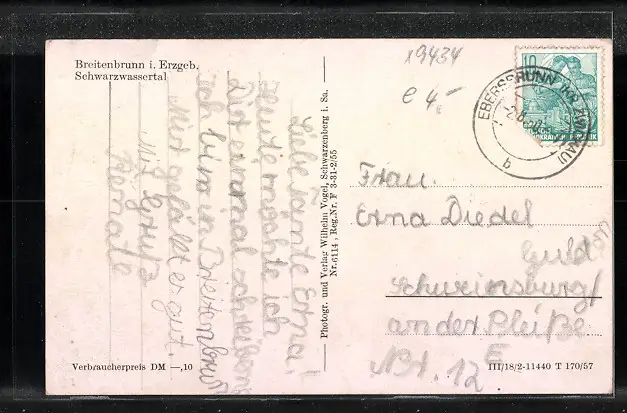 Breitenbrunn i. Erzgeb.
Schwarzwassertal
x9434
e 4-
10
EBERSBRUNN
b
Liebe Tante Erna!
Heute möchte ich
Dir einmal schreiben
Ich bin in Breitenbrun
Mir gefällt es gut.
Mit Gruß
Renate
Photogr. und Verlag Wilhelm Vogel, Schwarzenberg i. Sa.
Nr. 6114, Reg.Nr. F 3-31-2/55
Frau.
Erna Diedel
Schweinsburg/
an der Pleiße
Nr. 12 E
Verbraucherpreis DM —,10
III/18/2-11440 T 170/57